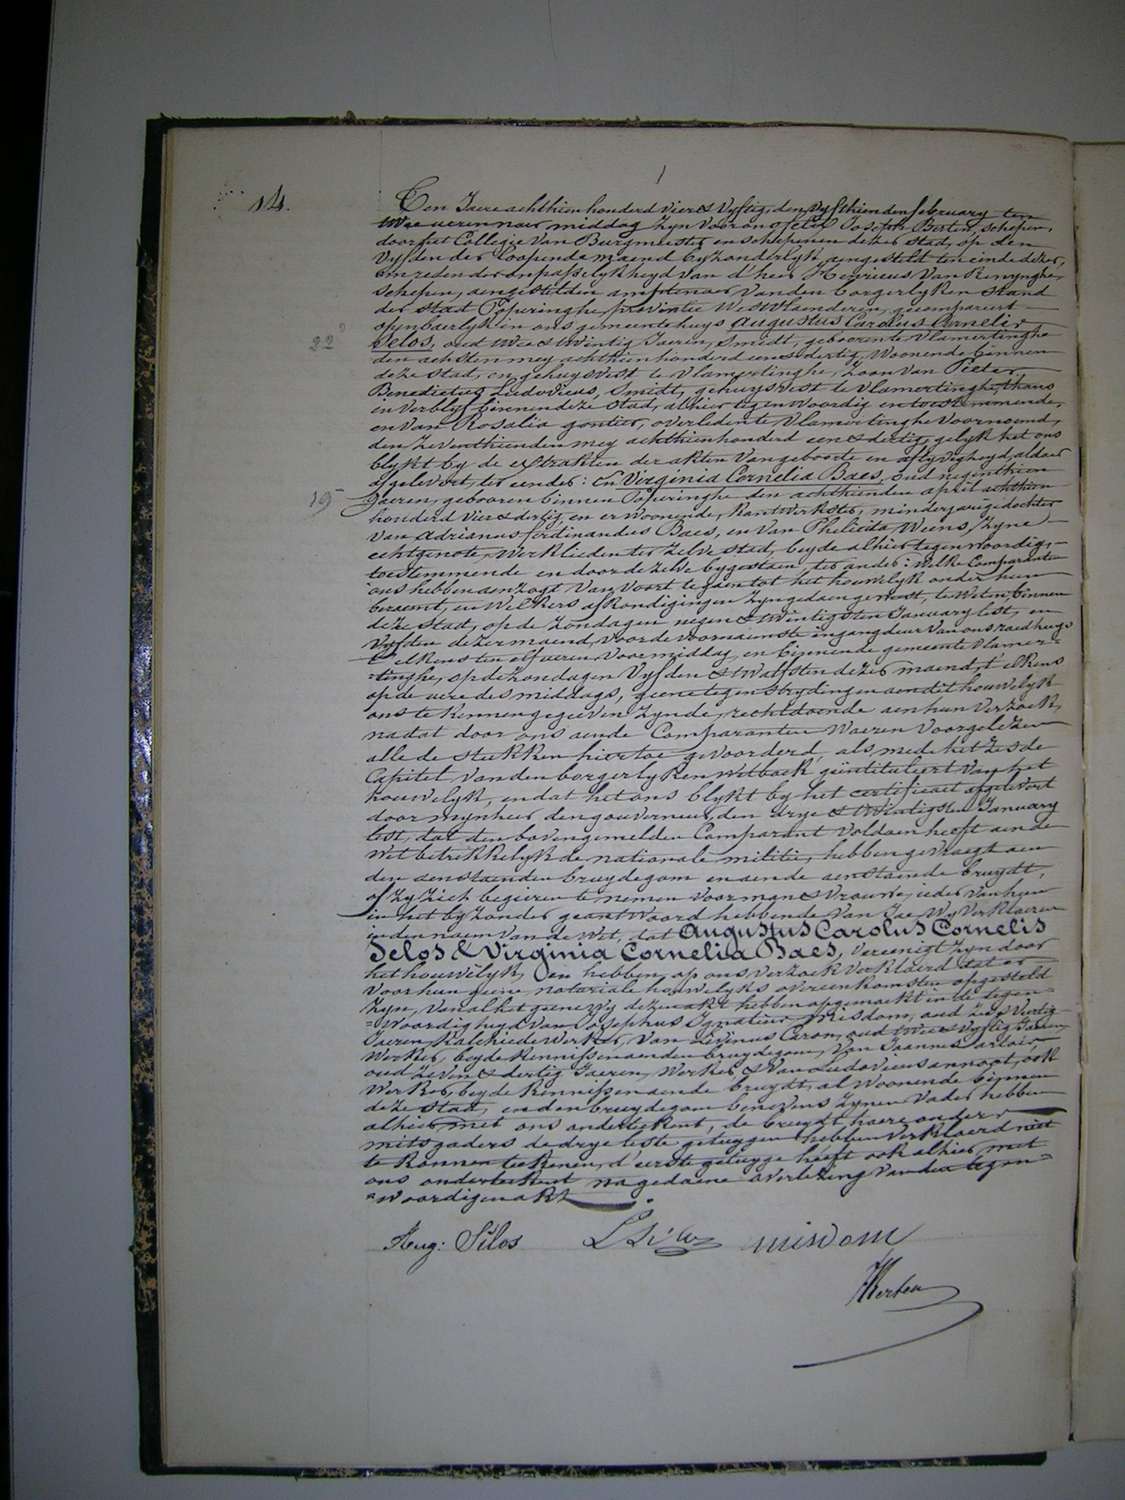 14.
Den Jaere achthien honderd vier & Vyftig, den Vyfthienden february ten
twee ueren naer middag Zyn voor ons felix Joseph Berten, schepen,
door het Collegie van Burgmeester en schepenen dezer stad, op den
Vyfden der loopende maend byzonderlyk aengesteld ten einde dezer,
om reden der onpasselykheyd van d'heer Henricus Van Renynghe,
schepen, aengestelden amptenaer van den borgerlyken Stand
der Stad Poperinghe, provintie Westvlaenderen, gecompareert
openbaerlyk in ons gemeentehuys Augustus Carolus Cornelis
22
Selos, oud twee & twintig Jaeren, Smidt, gebooren te Vlamertinghe
den achsten mey achthien honderd een & dertig, Woonende binnen
deze stad, en gehuysvest te Vlamertinghe, Zoon van Pieter
Benedictus Ludovicus, Smidt, gehuysvest te Vlamertinghe, thans
en verblyf binnen deze stad, alhier tegenwoordig en toestemmende,
en van Rosalia gontier, overleden te Vlamertinghe voornoemd,
den Zeventhienden mey achthien honderd een & dertig, gelyk het ons
blykt by de extrakten der akten van geboorte en aflyvigheyd, aldaer
afgelevert, ter eender: en Virginia Cornelia Baes, oud negenthien
19
Jaeren, gebooren binnen Poperinghe den achthienden april achthien
honderd Vier & dertig, en er Woonende, Kantwerkster, minderjarige dochter
van Adrianus ferdinandus Baes, en van Philicita Weens, Zyne
echtgenote, Werklieden ter zelve stad, beyde alhier tegenwoordig,
toestemmende en door de zelve bygestaen, ter ander: welke Comparanten
ons hebben aenzogt van voort te gaen tot het houwelyk onder hun
beraemt, en Welkers afkondigingen Zyn gedaen geweest, te Weten binnen
deze Stad, op de Zondagen negen & twintigsten January lest, en
Vyfden dezer maend, voor de voornaemste ingangdeur van ons raedhuys
t'elkens ten elf ueren voormiddag, en binnen de gemeente Vlamer-
tinghe, op de Zondagen Vyfden & twalfsten dezer maend, t'elkens
op de uere des middags, geene tegenstrydingen aen dit houwelyk
ons te kennen gegeeven Zynde, rechtdoende aen hun verzoek,
nadat door ons aen de Comparanten Waeren Voorgelezen
alle de stukken hier toe gevoorderd, als mede het zesde
Capitel van den borgerlyken Wetboek, geïntituleert van het
houwelyk, en dat het ons blykt by het certificaet afgelevert
door mynheer den gouverneur, den drye & twintigsten January
lest, dat den bovengemelden Comparant voldaen heeft aen de
Wet betrekkelyk de nationale militie, hebben gevraegt aen
den aenstaenden bruydegom en aen de aenstaende bruydt,
of Zy Zich begeeren te nemen voor man & Vrouwe, ieder van hun
in het byzonder geantwoord hebbende van Jae, Wy verklaeren
in den naem van de Wet, dat Augustus Carolus Cornelis
Selos & Virginia Cornelia Baes, Vereenigt Zyn door
het houwelyk, en hebben, op ons verzoek verklaerd dat er
voor hun geene notariale houwelyks overeenkomsten opgesteld
Zyn, van al het gene Wy deze akt hebben opgemaekt in de tegen-
Woordigheyd van Josephus Ignatius Misdom, oud Zes & Veertig
Jaeren, Kalchiedewerker, van Livinus Caron, oud twee & vyftig Jaeren,
Werker, beyde kennissen aen den bruydegom, Van Joannes Carlois,
oud Zeven & dertig Jaeren, Werker & van Ludovicus annoot, ook
Werker, beyde kennissen aen de bruydt, al Woonende binnen
deze Stad, en den bruydegom benevens Zynen Vader hebben
alhier met ons onderteekent, de bruydt haere ouders
mitsgaders de drye leste getuygen hebben verklaerd niet
te konnen teekenen, d'eerste getuyge heeft ook alhier met
ons onderteekent na gedaene overlezing van den tegen-
Woordigen akt
Aug: Sèlos misdom
Berten